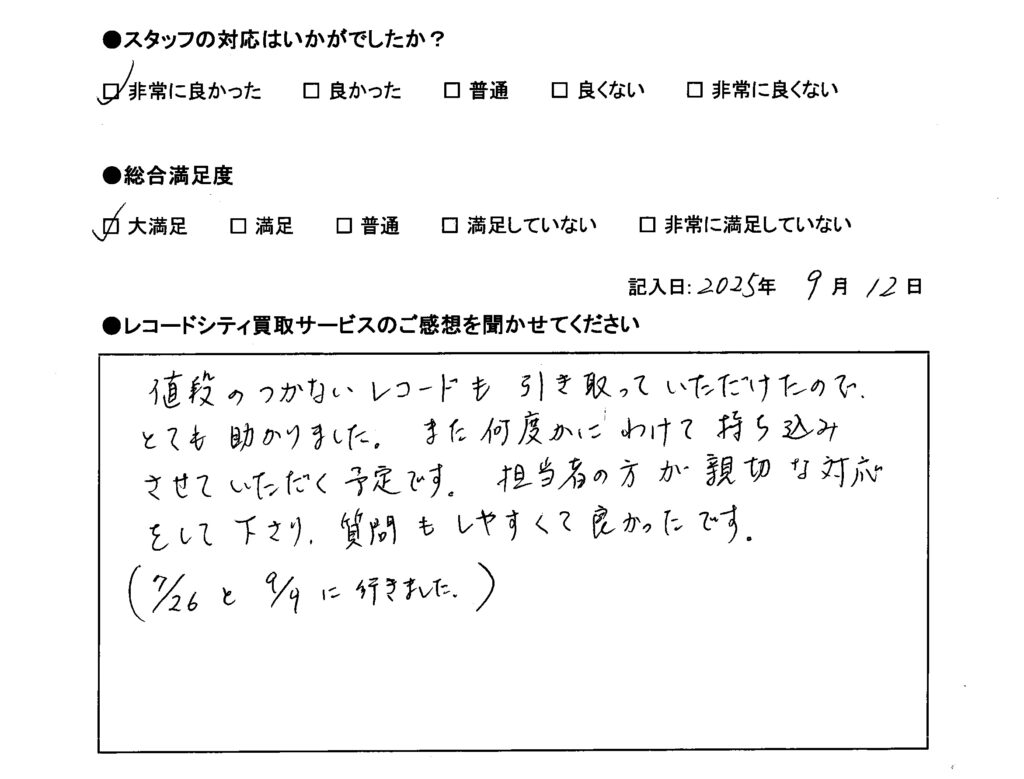 ●スタッフの対応はいかがでしたか？
☑ 非常に良かった □ 良かった □ 普通 □ 良くない □ 非常に良くない
●総合満足度
☑ 大満足 □ 満足 □ 普通 □ 満足していない □ 非常に満足していない
記入日:2025年 9月 12日
●レコードシティ買取サービスのご感想を聞かせてください
値段のつかないレコードも 引き取っていただけたので、
とても助かりました。また何度かにわけて持ち込み
させていただく予定です。担当者の方が親切な対応
をして下さり、質問もしやすくて良かったです。
(7/26 と 9/9 に行きました。)